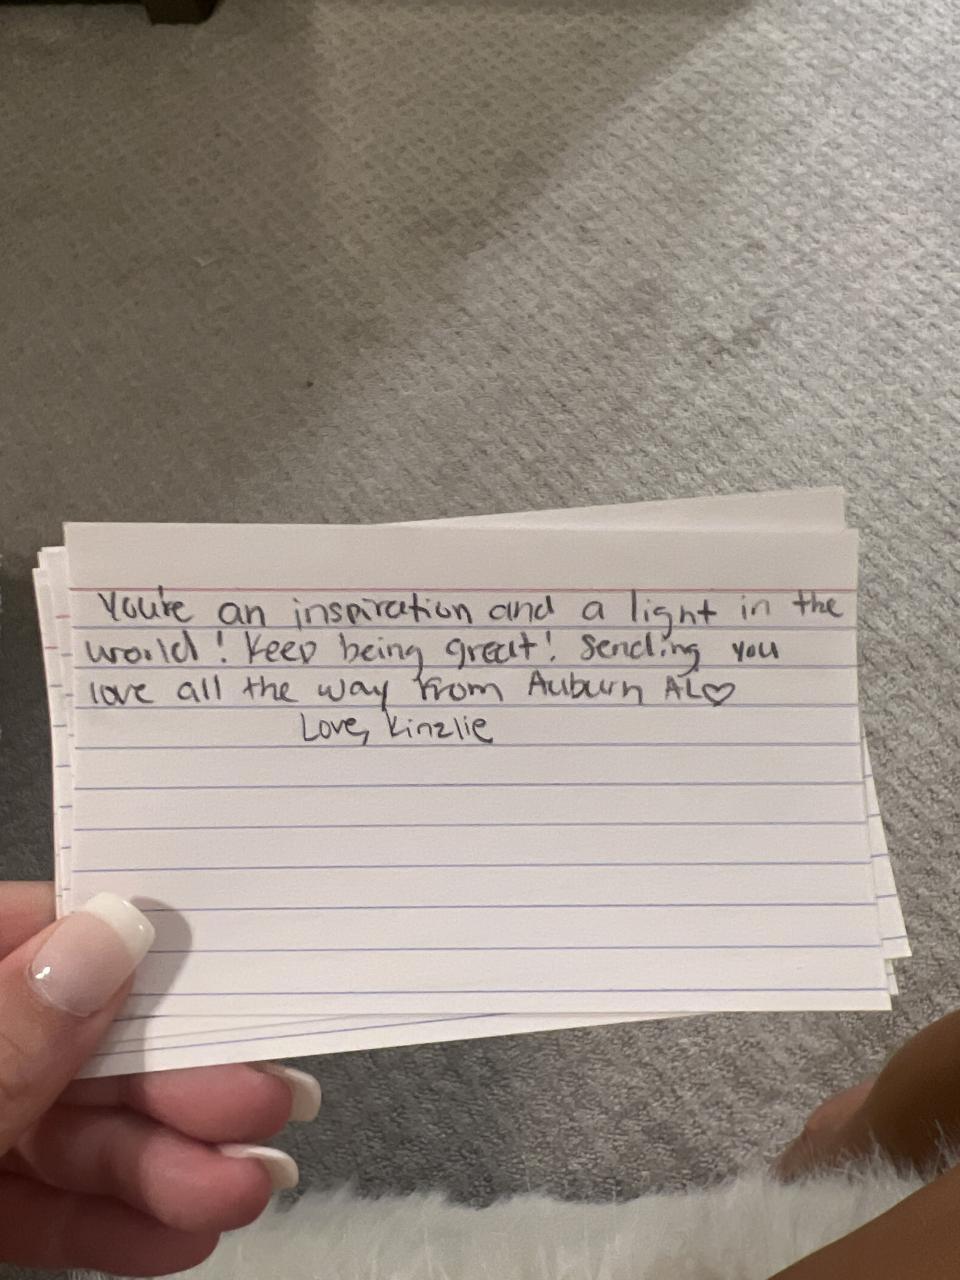 You're an inspiration and a light in the
world! Keep being great! Sending you
love all the way from Auburn AL♡
Love, Kinzlie